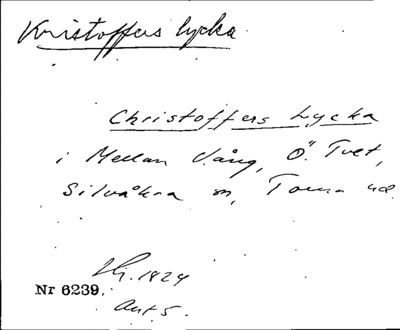 Kristoffers lycka
Christoffers Lycka
i Mellan Vång, Ö. Tvet,
Silvåkra sn, Torna hd.
1824
Nr 6239.
Akt 5.